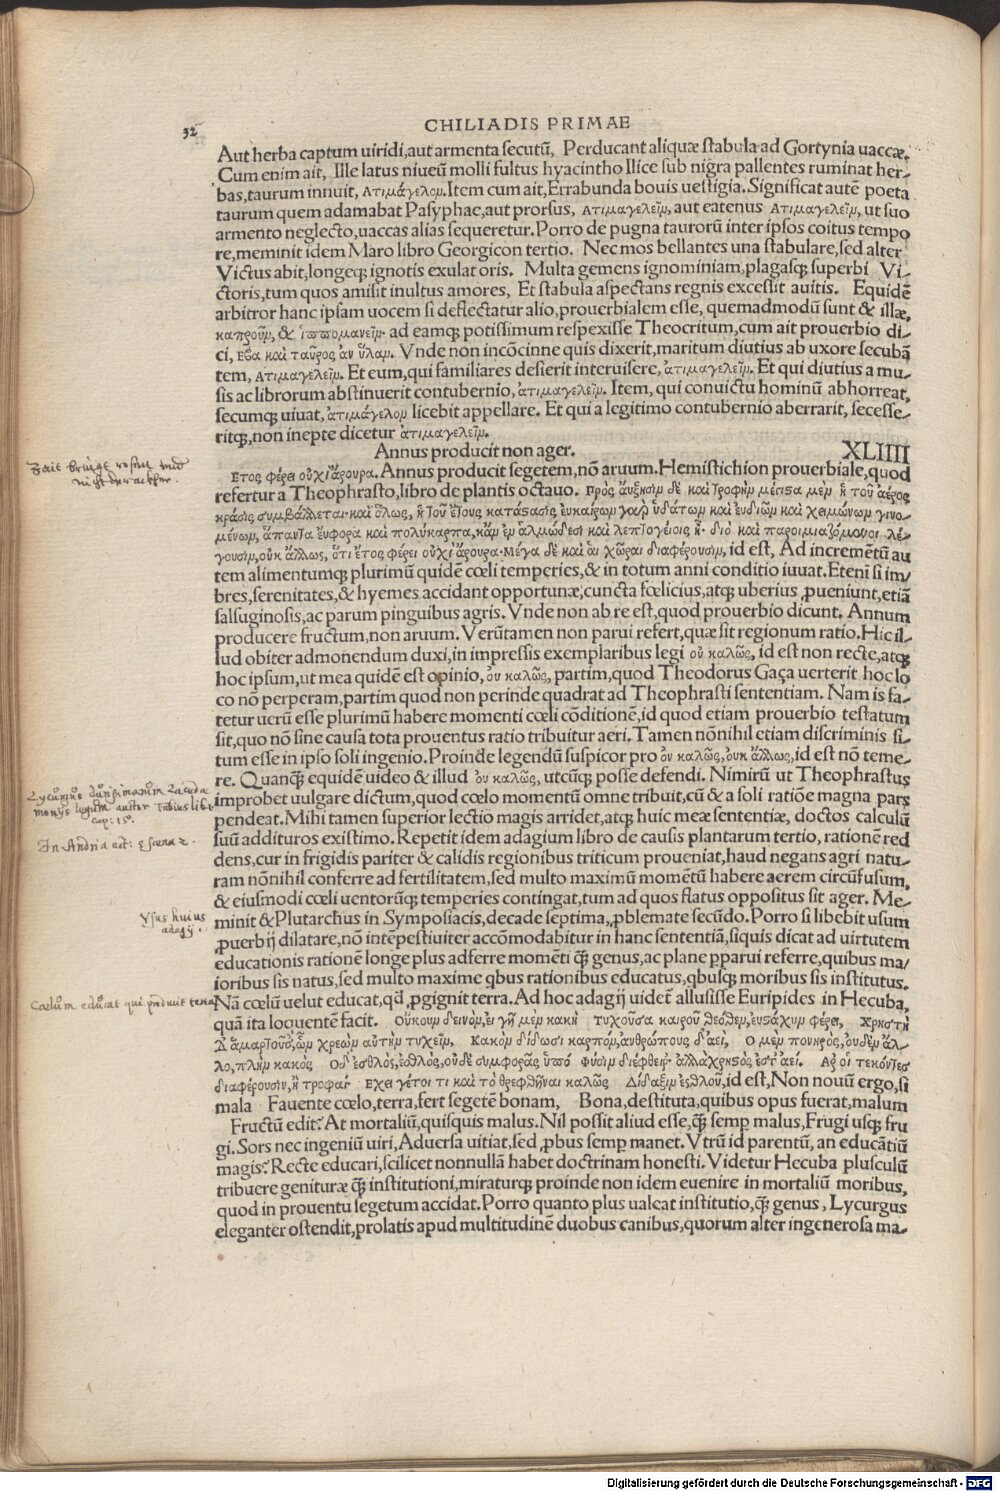 32
CHILIADIS PRIMAE
Aut herba captum uiridi, aut armenta secutū, Perducant aliquæ stabula ad Gortynia uaccæ.
Cum enim ait, Ille latus niueū molli fultus hyacintho Ilice sub nigra pallentes ruminat her-
bas, taurum innuit, ἀτιμάγελον. Item cum ait, Errabunda bouis uestigia. Significat autē poeta
taurum quem adamabat Pasyphae, aut prorsus, ἀτιμαγελεῖν, aut eatenus ἀτιμαγελεῖν, ut suo
armento neglecto, uaccas alias sequeretur. Porro de pugna taurorū inter ipsos coitus tempo
re, meminit idem Maro libro Georgicon tertio. Nec mos bellantes una stabulare, sed alter
Victus abit, longeq; ignotis exulat oris. Multa gemens ignominiam, plagasq; superbi Vi-
ctoris, tum quos amisit inultus amores, Et stabula aspectans regnis excessit auitis. Equidē
arbitror hanc ipsam uocem si deflectatur alio, prouerbialem esse, quemadmodū sunt & illæ,
καπροῦν, & ἱππομανεῖν. ad eamq; potissimum respexisse Theocritum, cum ait prouerbio di-
ci, ἔβα καὶ ταῦρος ἀν ὕλαν. Vnde non incōcinne quis dixerit, maritum diutius ab uxore secubā
tem, ἀτιμαγελεῖν. Et eum, qui familiares desierit interuisere, ἀτιμαγελεῖν. Et qui diutius a mu-
sis ac librorum abstinuerit contubernio, ἀτιμαγελεῖν. Item, qui conuictu hominū abhorreat,
secumq; uiuat, ἀτιμάγελον licebit appellare. Et qui a legitimo contubernio aberrarit, secesse-
ritq;, non inepte dicetur ἀτιμαγελεῖν.
Annus producit non ager. XLIIII
Ετος φέρει οὐχὶ ἄρουρα. Annus producit segetem, nō aruum. Hemistichion prouerbiale, quod
refertur a Theophrasto, libro de plantis octauo. πρὸς αὔξησιν δὲ καὶ τροφὴν μέγιστα μὲν ἡ τοῦ ἀέρος
κρᾶσις συμβάλλεται. καὶ ὅλως, ἡ τοῦ ἔτους κατάστασις, εὐκαίρων γὰρ ὑδάτων καὶ εὐδιῶν καὶ χειμώνων γινο-
μένων, ἅπαντα εὔφορα καὶ πολύκαρπα, κἂν ἐν ἁλμώδεσι καὶ λεπτογείοις ᾖ. διὸ καὶ παροιμιαζόμενοι λέ-
γουσιν, οὐκ ἄλλως, ὅτι ἔτος φέρει οὐχὶ ἄρουρα. Μέγα δὲ καὶ αἱ χῶραι διαφέρουσιν, id est, Ad incremētū au
tem alimentumq; plurimū quidē cœli temperies, & in totum anni conditio iuuat. Etenī si im-
bres, serenitates, & hyemes accidant opportunæ, cuncta fœlicius, atq; uberius ꝓueniunt, etiā
salsuginosis, ac parum pinguibus agris. Vnde non ab re est, quod prouerbio dicunt. Annum
producere fructum, non aruum. Verūtamen non parui refert, quæ sit regionum ratio. Hic il-
lud obiter admonendum duxi, in impressis exemplaribus legi οὐ καλῶς, id est non recte, atq;
hoc ipsum, ut mea quidē est opinio, οὐ καλῶς, partim, quod Theodorus Gaça uerterit hoc lo
co nō perperam, partim quod non perinde quadrat ad Theophrasti sententiam. Nam is fa-
tetur uerū esse plurimū habere momenti cœli cōditionē, id quod etiam prouerbio testatum
sit, quo nō sine causa tota prouentus ratio tribuitur aeri. Tamen nōnihil etiam discriminis si-
tum esse in ipso soli ingenio. Proinde legendū suspicor pro οὐ καλῶς, οὐκ ἄλλως, id est nō teme-
re. Quanq̄; equidē uideo & illud οὐ καλῶς, utcūq; posse defendi. Nimirū ut Theophrastus
improbet uulgare dictum, quod cœlo momentū omne tribuit, cū & a soli ratiōe magna pars
pendeat. Mihi tamen superior lectio magis arridet, atq; huic meæ sententiæ, doctos calculū
suū addituros existimo. Repetit idem adagium libro de causis plantarum tertio, rationē red
dens, cur in frigidis pariter & calidis regionibus triticum proueniat, haud negans agri natu-
ram nōnihil conferre ad fertilitatem, sed multo maximū momētū habere aerem circūfusum,
& eiusmodi cœli uentorūq; temperies contingat, tum ad quos flatus oppositus sit ager. Me-
minit & Plutarchus in Symposiacis, decade septima, ꝓblemate secūdo. Porro si libebit usum
ꝓuerbij dilatare, nō intēpestiuiter accōmodabitur in hanc sententiā, siquis dicat ad uirtutem
educationis rationē longe plus adferre momēti q̄; genus, ac plane ꝑparui referre, quibus ma-
ioribus sis natus, sed multo maxime qbus rationibus educatus, qbusq; moribus sis institutus.
Nā cœlū uelut educat, qd̄ ꝓgignit terra. Ad hoc adagij uidet᷑ allusisse Euripides in Hecuba,
quā ita loquentē facit. Οὔκουν δεινὸν, εἰ γῆ μὲν κακὴ τυχοῦσα καιροῦ θεόθεν, εὖ στάχυν φέρει, Χρηστὴ
δ' ἁμαρτοῦσ', ὧν χρεὼν αὐτὴν τυχεῖν, Κακὸν δίδωσι καρπόν, ἀνθρώπους δ' ἀεί, Ο μὲν πονηρὸς, οὐδὲν ἄλ-
λο, πλὴν κακός Οδ' ἐσθλὸς, ἐσθλὸς, οὐδὲ συμφορᾶς ὑπὸ φύσιν διέφθειρ' ἀλλὰ χρηστὸς ἐστ' ἀεί. Αρ' οἱ τεκόντες
διαφέρουσιν, ἢ τροφαί Εχει γέ τοι τι καὶ τὸ θρεφθῆναι καλῶς Δίδαξιν ἐσθλοῦ, id est, Non nouū ergo, si
mala Fauente cœlo, terra, fert segetē bonam, Bona, destituta, quibus opus fuerat, malum
Fructū edit? At mortaliū, quisquis malus. Nil possit aliud esse, q̄; semꝑ malus, Frugi usq; fru
gi. Sors nec ingeniū uiri, Aduersa uitiat, sed ꝓbus semꝑ manet. Vtrū id parentū, an educātiū
magis? Recte educari, scilicet nonnullā habet doctrinam honesti. Videtur Hecuba plusculū
tribuere genituræ q̄; institutioni, miraturq; proinde non idem euenire in mortaliū moribus,
quod in prouentu segetum accidat. Porro quanto plus ualeat institutio, q̄; genus, Lycurgus
eleganter ostendit, prolatis apud multitudinē duobus canibus, quorum alter ingenerosa ma-
Zait bringt rosen und
nicht der acker.
Lycurgus
legum autor
cap: 15.
In Andria act: scena 2.
Vsus huius
adagij.
Cœlum educat qui produit terra
Digitalisierung gefördert durch die Deutsche Forschungsgemeinschaft - DFG